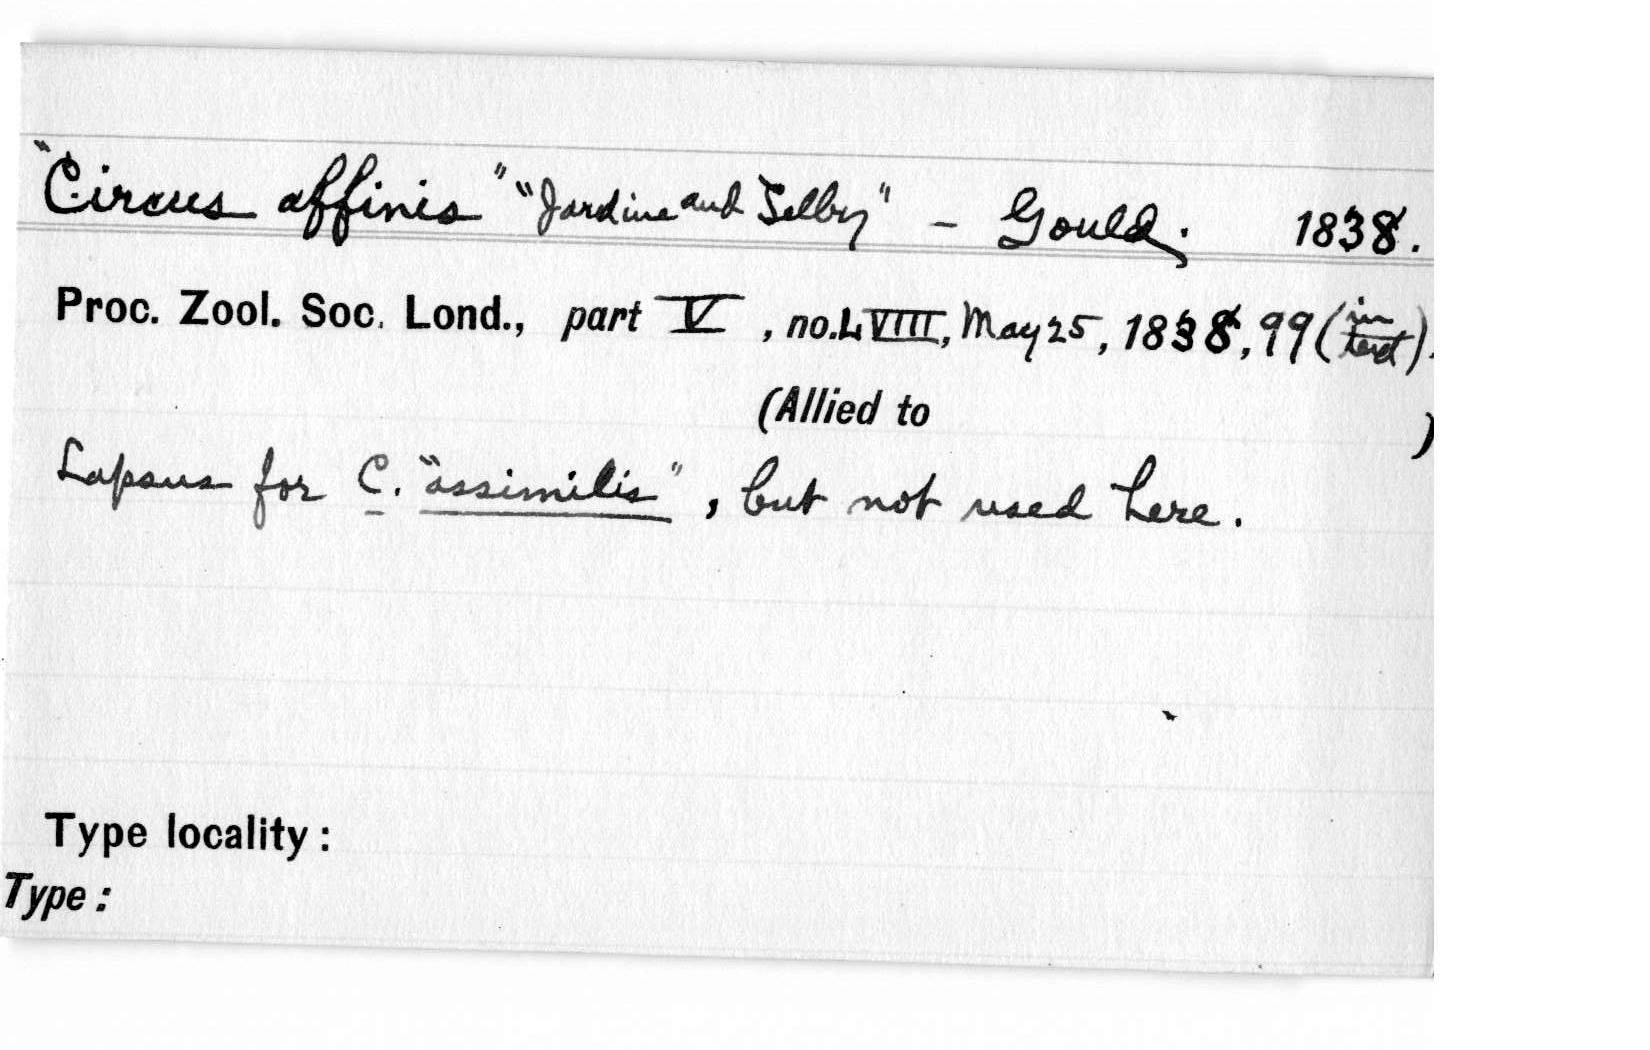 "Circus affinis" "Jardine and Selby" – Gould. 1838.
Proc. Zool. Soc. Lond., part V, no. LVIII, May 25, 1838, 99 (in text).
(Allied to )
Lapsus for C. "assimilis", but not used here.
Type locality:
Type: